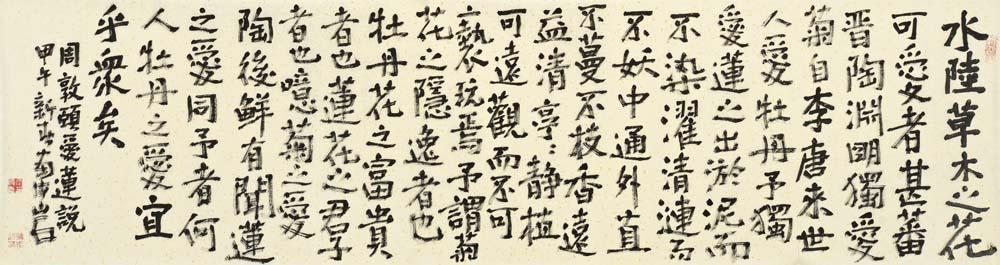 水陸草木之花
可愛者甚蕃
晋陶淵明獨愛
菊自李唐来世
人愛牡丹予獨
愛蓮之出淤泥而
不染濯清漣而
不妖中通外直
不蔓不枝香遠
益清亭〻静植
可遠觀而不可
褻玩焉予謂菊
花之隱逸者也
牡丹花之富貴
者也蓮花之君子
者也噫菊之愛
陶後鮮有聞蓮
之愛同予者何
人牡丹之愛宜
乎衆矣
周敦頤愛蓮説
甲午新春